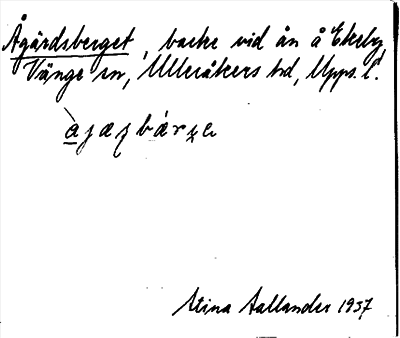 Ågärdsberget, backe vid ån å Ekeby,
Vänge sn, Ulleråkers hd, Upps. l.
Stina Aallander 1937